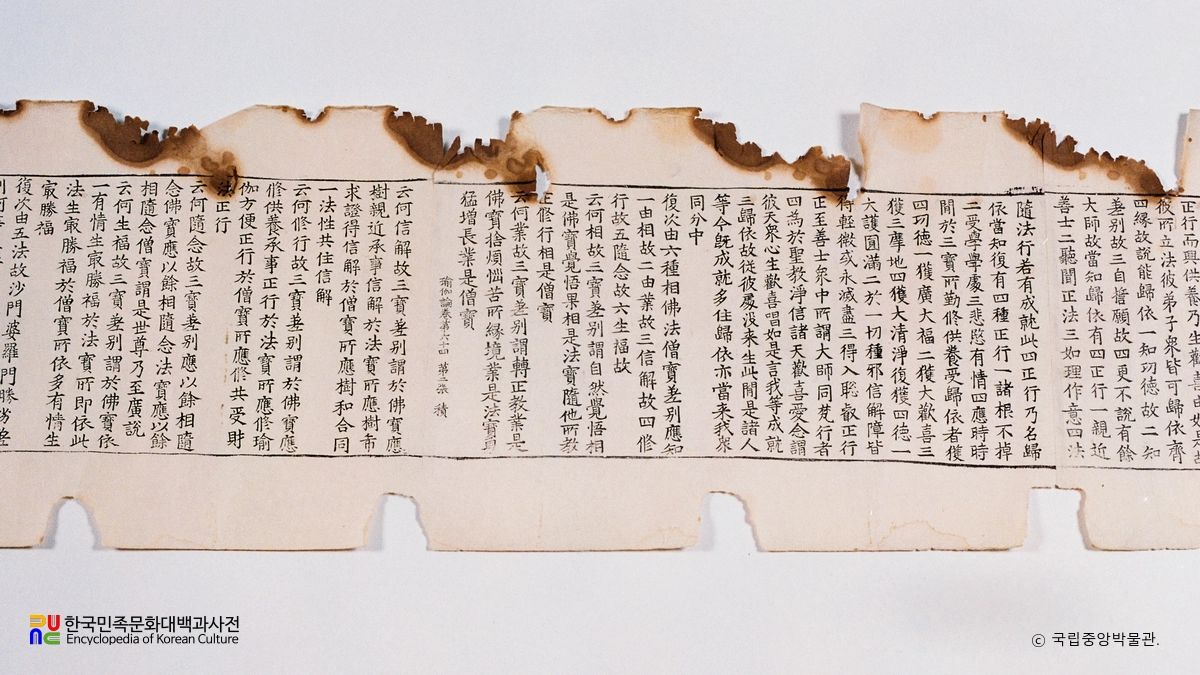 正行而興供養乃生歡喜
彼所立法彼弟子眾皆可歸依齊
四緣故說能歸依一知功德故二知
差别故三自誓願故四更不說有餘
大師故當知歸依有四正行一親近
善士二聽聞正法三如理作意四法
隨法行若有成就此四正行乃名歸
依當知復有四種正行一諸根不掉
二受學學處三悲愍有情四應時時
間於三寶所勤修供養受歸依者獲
四功德一獲廣大福二獲大歡喜三
獲三摩地四獲大清淨復獲四德一
大護圓滿二於一切種邪信解障皆
得輕微或永滅盡三得入聡叡正行
正至善士眾中所謂大師同梵行者
四為於聖教淨信諸天歡喜愛念謂
彼天眾心生歡喜唱如是言我等成就
三歸依故從彼處没来生此間是諸人
等今既成就多住歸依亦當来我眾
同分中
復次由六種相佛法僧寶差别應知
一由相故二由業故三信解故四修
行故五隨念故六生福故
云何相故三寶差别謂自然覺悟相
是佛寶覺悟果相是法寶隨他所教
正修行相是僧寶
云何業故三寶差别謂轉正教業是
佛寶捨煩惱苦所緣境業是法寶勇
猛增長業是僧寶
瑜伽論卷第六十四 第三張 積
云何信解故三寶差别謂於佛寶應
樹親近承事信解於法寶所應樹希
求證得信解於僧寶所應樹和合同
一法性共住信解
云何修行故三寶差别謂於佛寶應
修供養承事正行於法寶所應修瑜
伽方便正行於僧寶所應修共受財
法正行
云何隨念故三寶差别應以餘相隨
念佛寶應以餘相隨念法寶應以餘
相隨念僧寶謂是世尊乃至廣說
云何生福故三寶差别謂於佛寶依
一有情生㝡勝福於法寶所即依此
法生㝡勝福於僧寶所依多有情生
㝡勝福
復次由五法故沙門婆羅門
한국민족문화대백과사전
Encyclopedia of Korean Culture
ⓒ 국립중앙박물관.